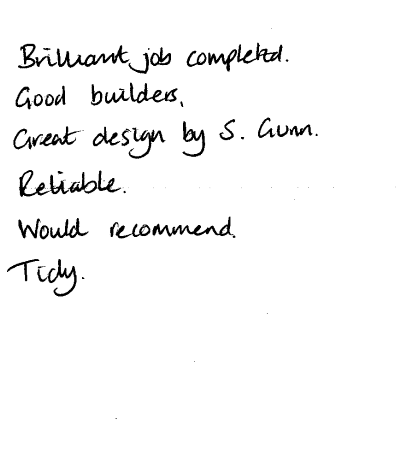 Brilliant job completed.
Good builders,
Great design by S. Gunn.
Reliable.
Would recommend.
Tidy.